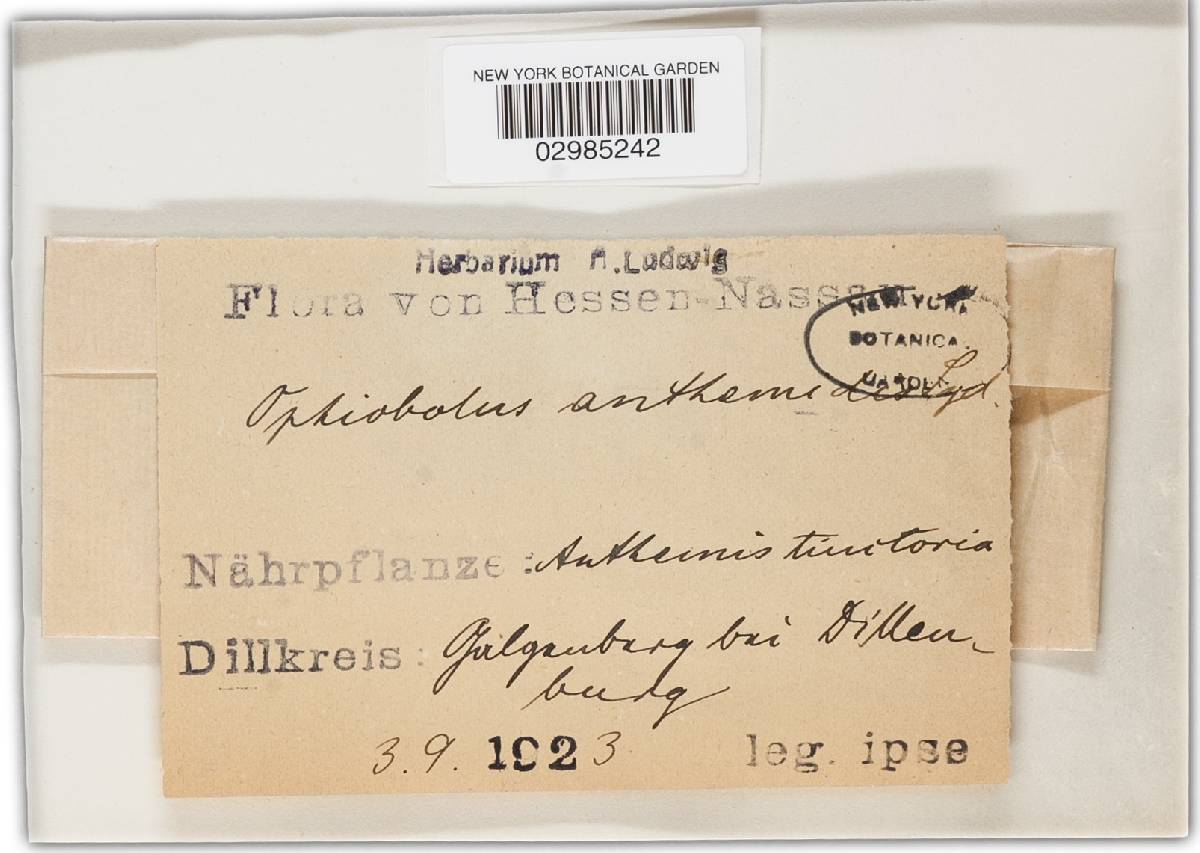 NEW YORK BOTANICAL GARDEN
02985242
Herbarium A. Ludwig
Flora von Hessen-Nassau
NEW YORK
BOTANICAL
GARDEN
Ophiobolus anthemidis Syd.
Nährpflanze: Anthemis tinctoria
Dillkreis: Galgenberg bei Dillen-
burg
3.9.1923 leg. ipse